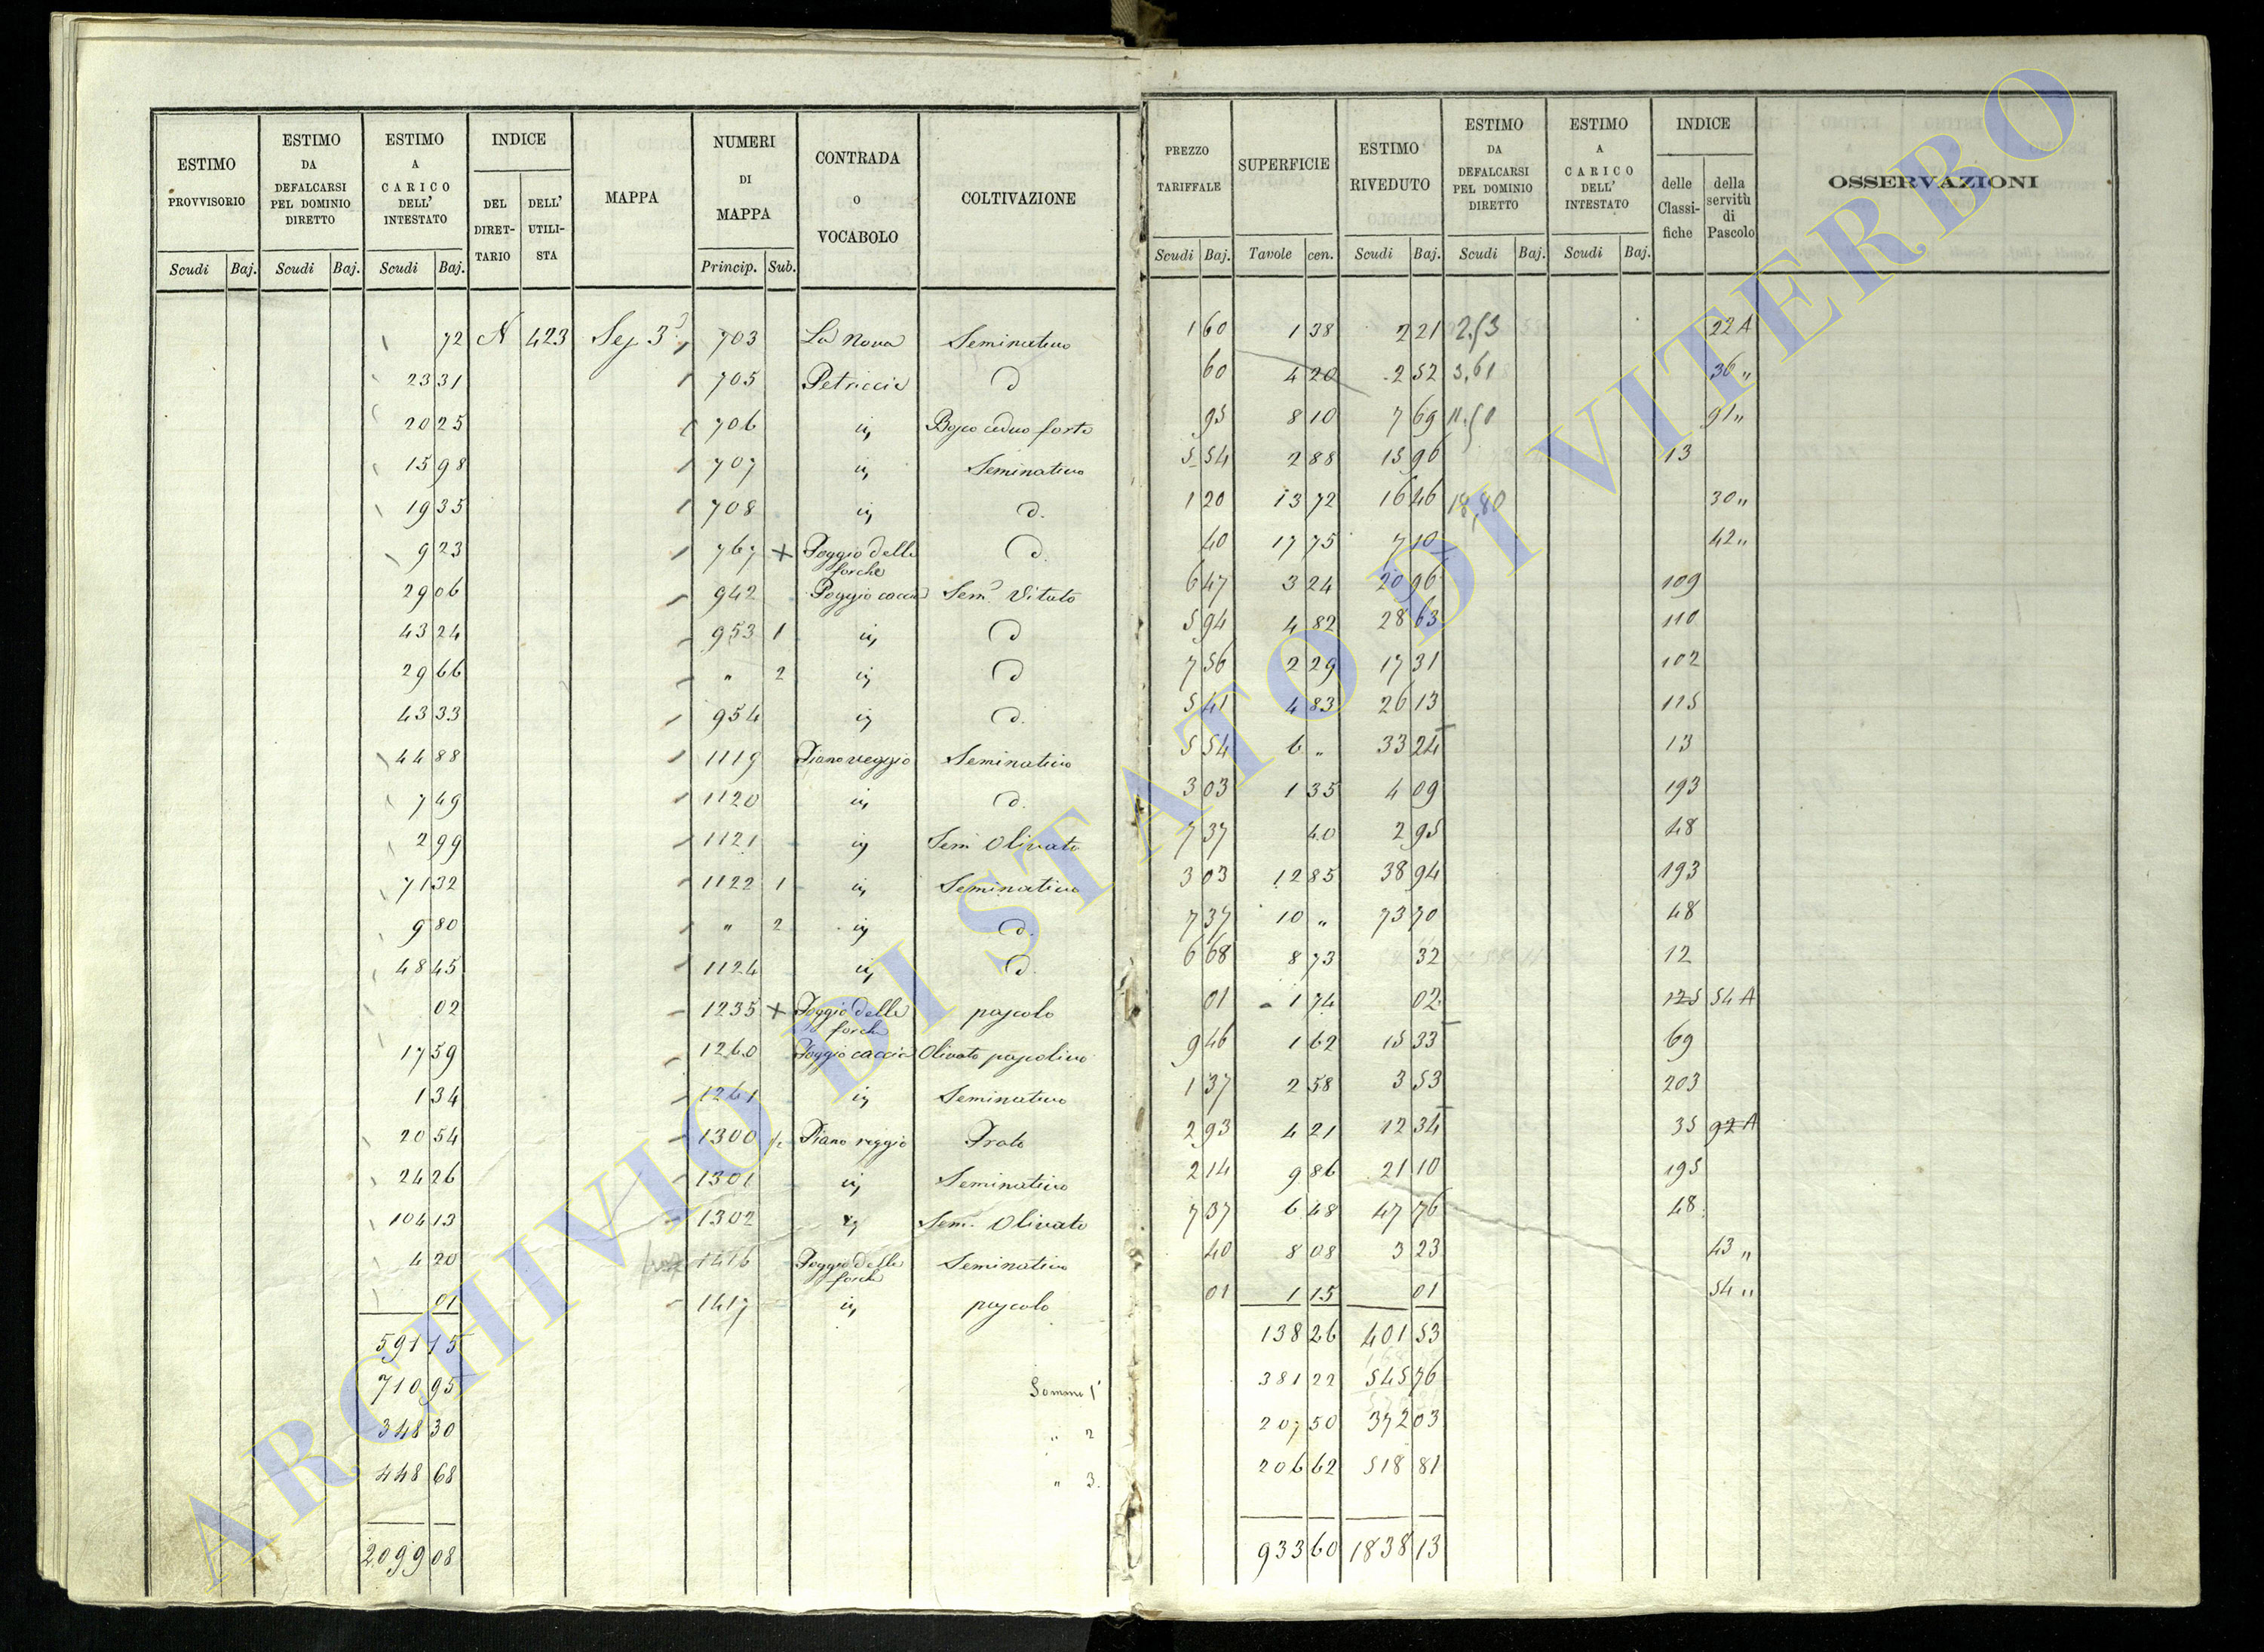 ESTIMO PROVVISORIO
ESTIMO DA DEFALCARSI PEL DOMINIO DIRETTO
ESTIMO A CARICO DELL' INTESTATO
INDICE
DEL DIRET-TARIO
DELL' UTILI-STA
MAPPA
NUMERI DI MAPPA
CONTRADA o VOCABOLO
COLTIVAZIONE
PREZZO TARIFFALE
SUPERFICIE
ESTIMO RIVEDUTO
ESTIMO DA DEFALCARSI PEL DOMINIO DIRETTO
ESTIMO A CARICO DELL' INTESTATO
INDICE
delle Classi-fiche
della servitù di Pascolo
OSSERVAZIONI
Scudi Baj. Scudi Baj. Scudi Baj. Princip. Sub. Scudi Baj. Tavole cen. Scudi Baj. Scudi Baj. Scudi Baj.
72 N 423 Sez 3ª 703 La Nova Seminativo 1 60 1 38 2 21 22 A
23 31 705 Petriccia d 60 4 20 2 52 3,61 36 "
20 25 706 iv, Bosco ceduo forte 95 8 10 7 69 91 "
15 98 707 iv, Seminativo 5 54 2 88 15 96 13
19 35 708 iv, d. 1 20 13 72 16 46 18,80 30 "
9 23 767 + Poggio delle forche d. 40 17 75 7 10 42 "
29 06 942 Poggio caccia Semo Vitato 6 47 3 24 20 96 109
43 24 953 1 iv, d 5 94 4 82 28 63 110
29 66 " 2 iv, d 7 56 2 29 17 31 102
43 33 954 iv, d. 5 41 4 83 26 13 115
44 88 1119 Piano reggio Seminativo 5 54 6 " 33 24 13
7 49 1120 iv, d. 3 03 1 35 4 09 193
2 99 1121 iv, Sem Olivato 7 37 40 2 95 48
71 32 1122 1 iv, Seminativo 3 03 12 85 38 94 193
9 80 " 2 iv, d. 7 37 10 " 73 70 48
48 45 1124 iv, d. 6 68 8 73 32 12
02 1235 + Poggio delle forche pascolo 01 1 74 02 125 54 A
17 59 1260 Poggio caccia Olivato pascolivo 9 46 1 62 15 33 69
1 34 1261 iv, Seminativo 1 37 2 58 3 53 203
20 54 1300 Piano reggio Prato 2 93 4 21 12 34 35 92 A
24 26 1301 iv, Seminativo 2 14 9 86 21 10 195
104 13 1302 iv, Sem. Olivato 7 37 6 48 47 76 48
4 20 1416 Poggio delle forche Seminativo 40 8 08 3 23 43 "
01 1417 iv, pascolo 01 1 15 01 54 "
591 15 138 26 401 53
710 95 Somme 1ª 381 22 545 76
348 30 " 2 207 50 372 03
448 68 " 3. 206 62 518 81
2099 08 933 60 1838 13
ARCHIVIO DI STATO DI VITERBO